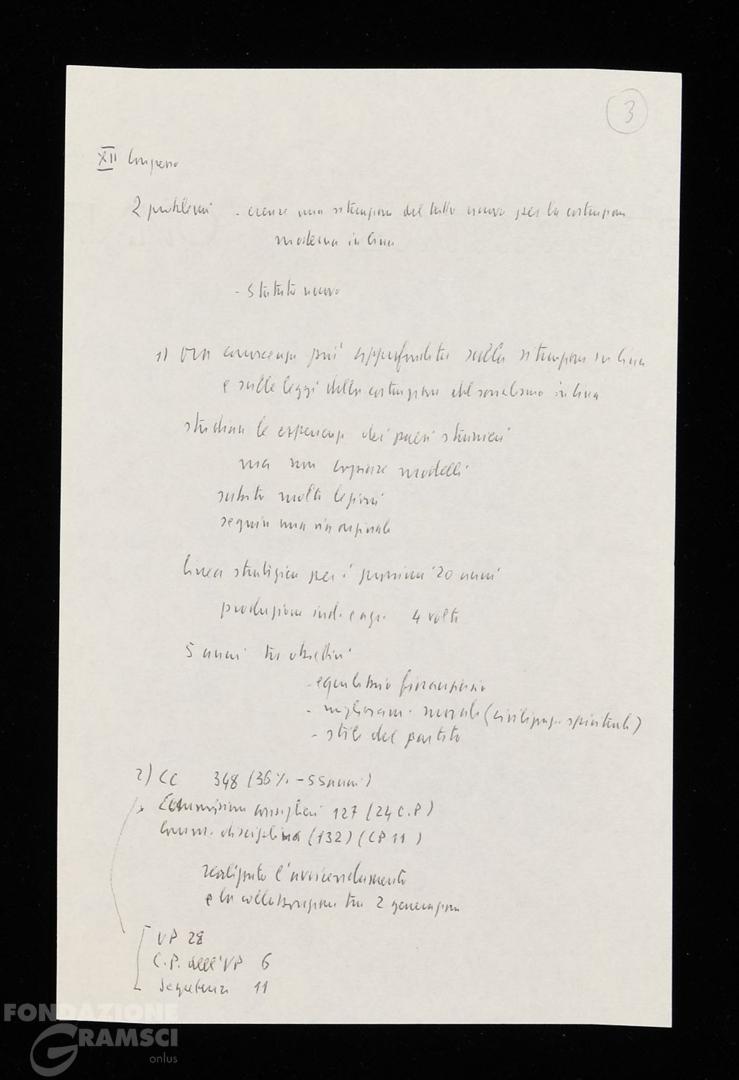 3
XII Congresso
2 problemi - creare una situazione del tutto nuova per la costruzione
moderna in Cina
- Statuto nuovo
1) ora conoscenza più approfondita sulla situazione in Cina
e sulle leggi della costruzione del socialismo in Cina
studiare le esperienze dei paesi stranieri
ma non copiare modelli
subito molte lezioni
seguire una via originale
linea strategica per i prossimi 20 anni
produzione ind. e agr. 4 volte
5 anni tre obiettivi
- equilibrio finanziario
- miglioram. morale (civilizzaz. spirituale)
- stile del partito
2) CC 348 (36% - 55 anni)
Commissione consiglieri 127 (24 C.P)
Comm. disciplina (132) (CP 11)
realizzato l'avvicendamento
e la collaborazione tra 2 generazioni
UP 28
C.P. dell'UP 6
Segreteria 11
FONDAZIONE
GRAMSCI
onlus